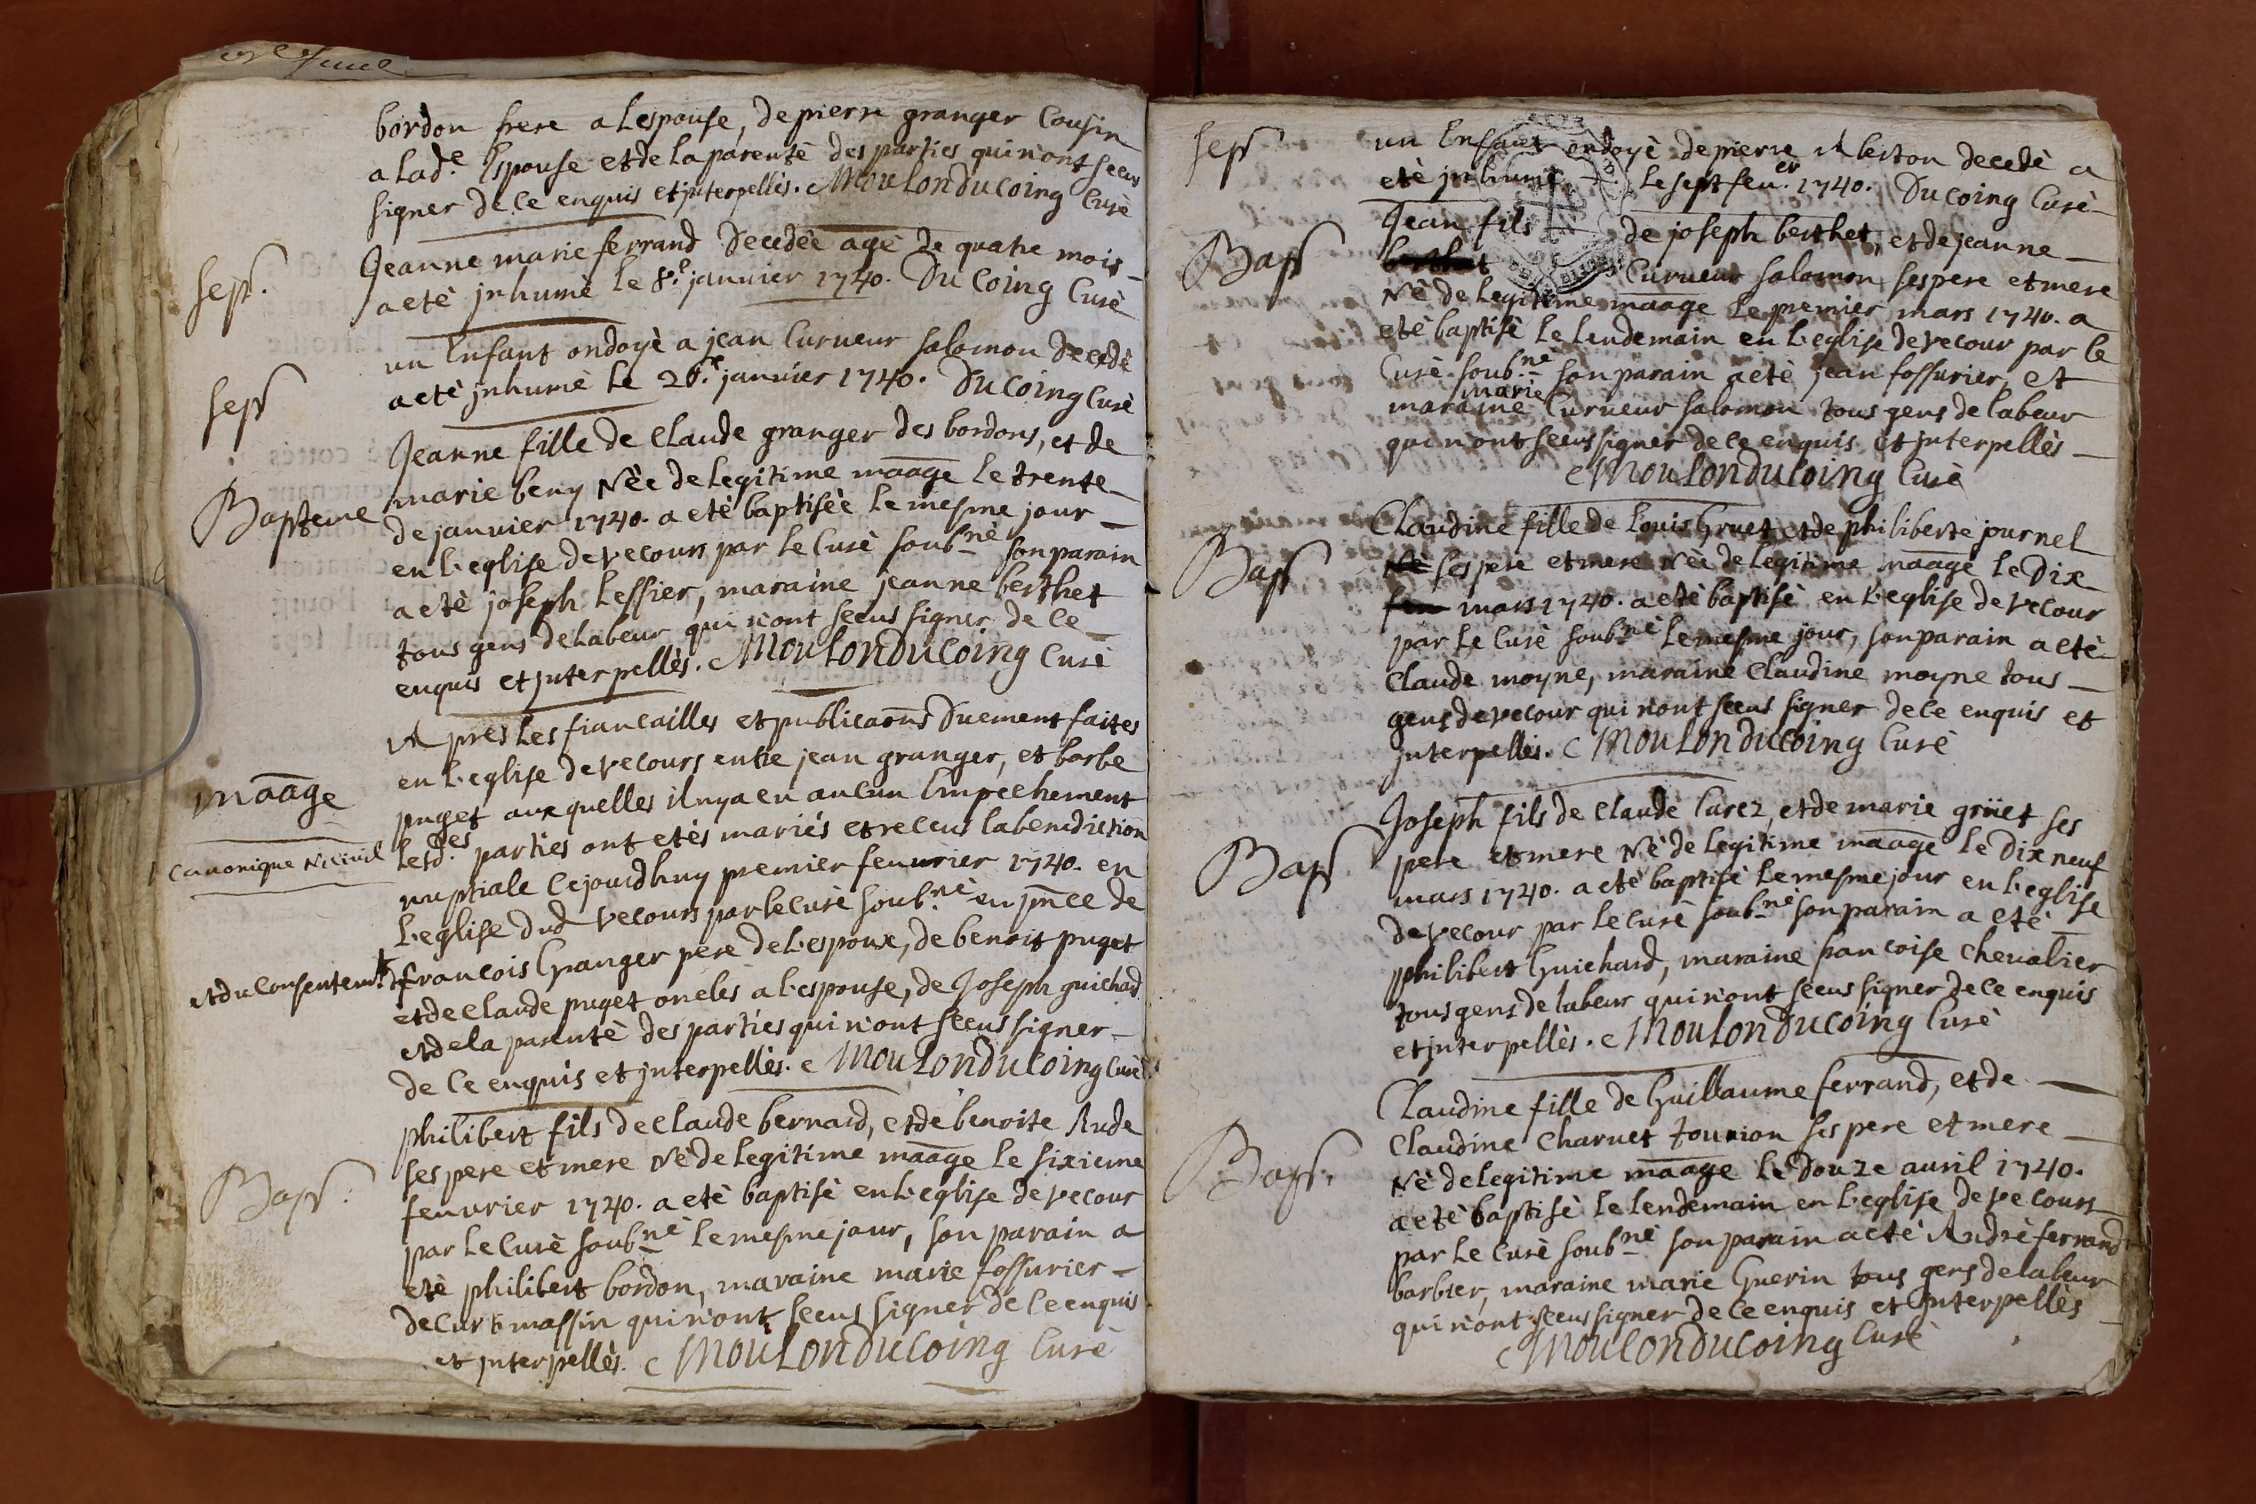 bordon frere a Lespouse, de pierre granger Cousin
a lad.e Espouse et de la parenté des parties qui n'ont sceus
signer de ce enquis et jnterpellès. Moulonducoing Curè
sep.
Jeanne marie ferrand Decedèe agè de quatre mois
a etè jnhumè le 8.e janvier 1740. Ducoing Curè
sep
un Enfant ondoyè a jean Curveur salomon Decedè
a etè jnhumè le 26.e janvier 1740. Ducoing Curè
Bapteme
Jeanne fille de Claude granger des bordons, et de
marie beny Nèe de legitime maage le trente
de janvier 1740. a etè baptisèe le mesme jour
en l'eglise de vecours par le Curè soub.nè son parain
a etè joseph Lessier, maraine jeanne berthet
tous gens de labeur qui n'ont sceus signer de ce
enquis et jnterpellès. Moulonducoing Curè
maage
Canonique N Civil
Apres les fiancailles et publicaons Duement faites
en l'eglise de vecours entre jean granger, et barbe
puget aux quelles il n'y a eu aucun Empechement
lesd.es parties ont etès mariés et receus la benediction
nuptiale ce jourdhuy premier fevvrier 1740. en
l'eglise dud vecours par le Curè soub.nè en pnce de
et du consentem.t
francois Granger pere de l'espoux, de benoit puget
et de Claude puget oncles a l'espouse, de Joseph guichad
et de la parentè des parties qui n'ont sceus signer
de ce enquis et jnterpellès. Moulonducoing Curè
Bap.
philibert fils de Claude bernard, et de benoite Rude
ses pere et mere Nè de legitime maage le sixieme
fevvrier 1740. a etè baptisè en l'eglise de vecour
par le Curè soub.nè le mesme jour, son parain a
etè philibert bordon, maraine marie fossurier
de Curtmassin qui n'ont sceus signer de ce enquis
et jnterpellès. Moulonducoing Curè
sep
un Enfant ondoyè de pierre Aberton decedè a
etè jnhumè le sept fev.er 1740. Ducoing Curè
Bap
Jean fils de joseph berthet, et de jeanne
Curveur salomon ses pere et mere
Nè de legitime maage le premier mars 1740. a
etè baptisè le lendemain en l'eglise de vecour par le
Curè soub.nè son parain a etè jean fossurier, et
marie
maraine Curveur salomon tous gens de labeur
qui n'ont sceus signer de ce enquis et jnterpellès
Moulonducoing Curè
Bap
Claudine fille de Louis Gruet et de philiberte journel
ses pere et mere Nèe de legitime maage le Dix
mars 1740. a etè baptisè en l'eglise de vecour
par le Curè soub.nè le mesme jour, son parain a etè
Claude moyne, maraine Claudine moyne tous
gens de vecour qui n'ont sceus signer de ce enquis et
jnterpellès. Moulonducoing Curè
Bap
Joseph fils de Claude Carez, et de marie grüet ses
pere et mere Nè de legitime maage le Dix neuf
mars 1740. a etè baptisè le mesme jour en l'eglise
de vecour par le Curè soub.nè son parain a etè
philibert Guichard, maraine francoise Chevalier
tous gens de labeur qui n'ont sceus signer de ce enquis
et jnterpellès. Moulonducoing Curè
Bap.
Claudine fille de Guillaume ferrand, et de
Claudine Charvet tourion ses pere et mere
Nè de legitime maage le Douze avril 1740.
a etè baptisè le lendemain en l'eglise de vecours
par le Curè soub.nè son parain a etè Andrè ferrand
barbier, maraine marie Guerin tous gens de labeur
qui n'ont sceus signer de ce enquis et jnterpellès
Moulonducoing Curè